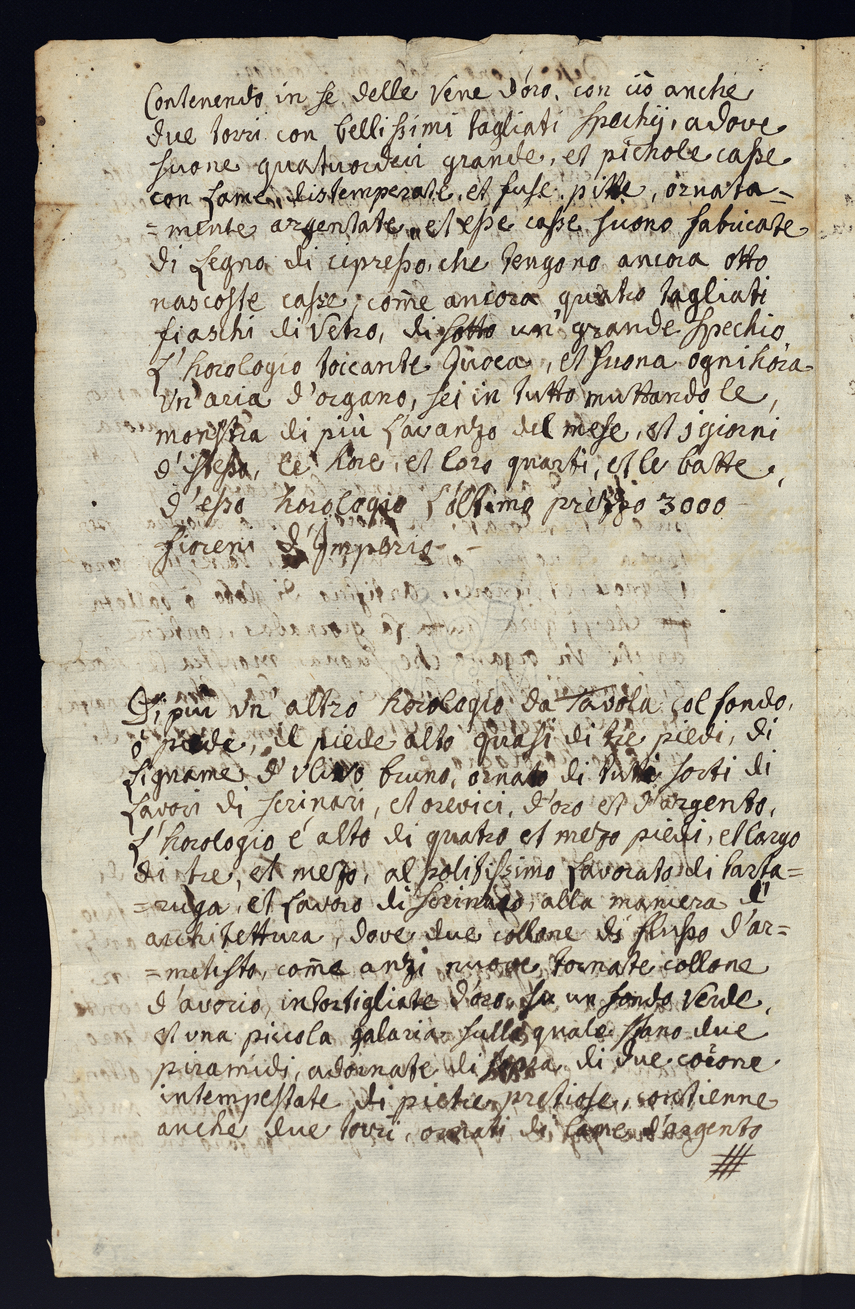 Contenendo in se delle Vene d'oro, con ciò anche
due torri con bellissimi tagliati spechij, adove
suono quatuordeci grande, et pichole casse
con Lame, distemperate, et fuse pitte, ornata=
=mente argentate, et esse casse suono fabricate
di Legno di cipresso, che tengono ancora otto
nascoste casse, come ancora quatro tagliati
fiaschi di Vetro, di sotto un' grande spechio
L'horologio toccante giuoca, et suona ogni hora
Vn' aria d'organo, sei in tutto muttandole,
monstra di più L'avanzo del mese, et i giorni
d'istesso, le hore, et loro quarti, et le batte,
d'esso horologio L'oltimo prezzo 3000
fioreni d'Imperio
Di più vn' altro horologio da Tavola col fondo,
ò piede, il piede alto quasi di tre piedi, di
Ligname d'Ulivo bruno, ornato di tutti sorti di
Lavori di scrinari, et orevici, d'oro et d'argento,
L'horologio è alto di quatro et mezo piedi, et largo
di tre, et mezo, al politissimo Lavorato di tarta=
=ruga, et Lavoro di scrinaro, alla maniera d'
architettura, dove due collone di flusso d'ar=
=metisto, come anzi nuove tornate collone
d'avorio, intortigliate d'oro, su un fondo Verde,
et una piccola galaria sulla quale stano due
piramidi, adornate di sopra, di due corone
intempestate di pietre pretiose, contienne
anche due torri, ornati di lame d'argento